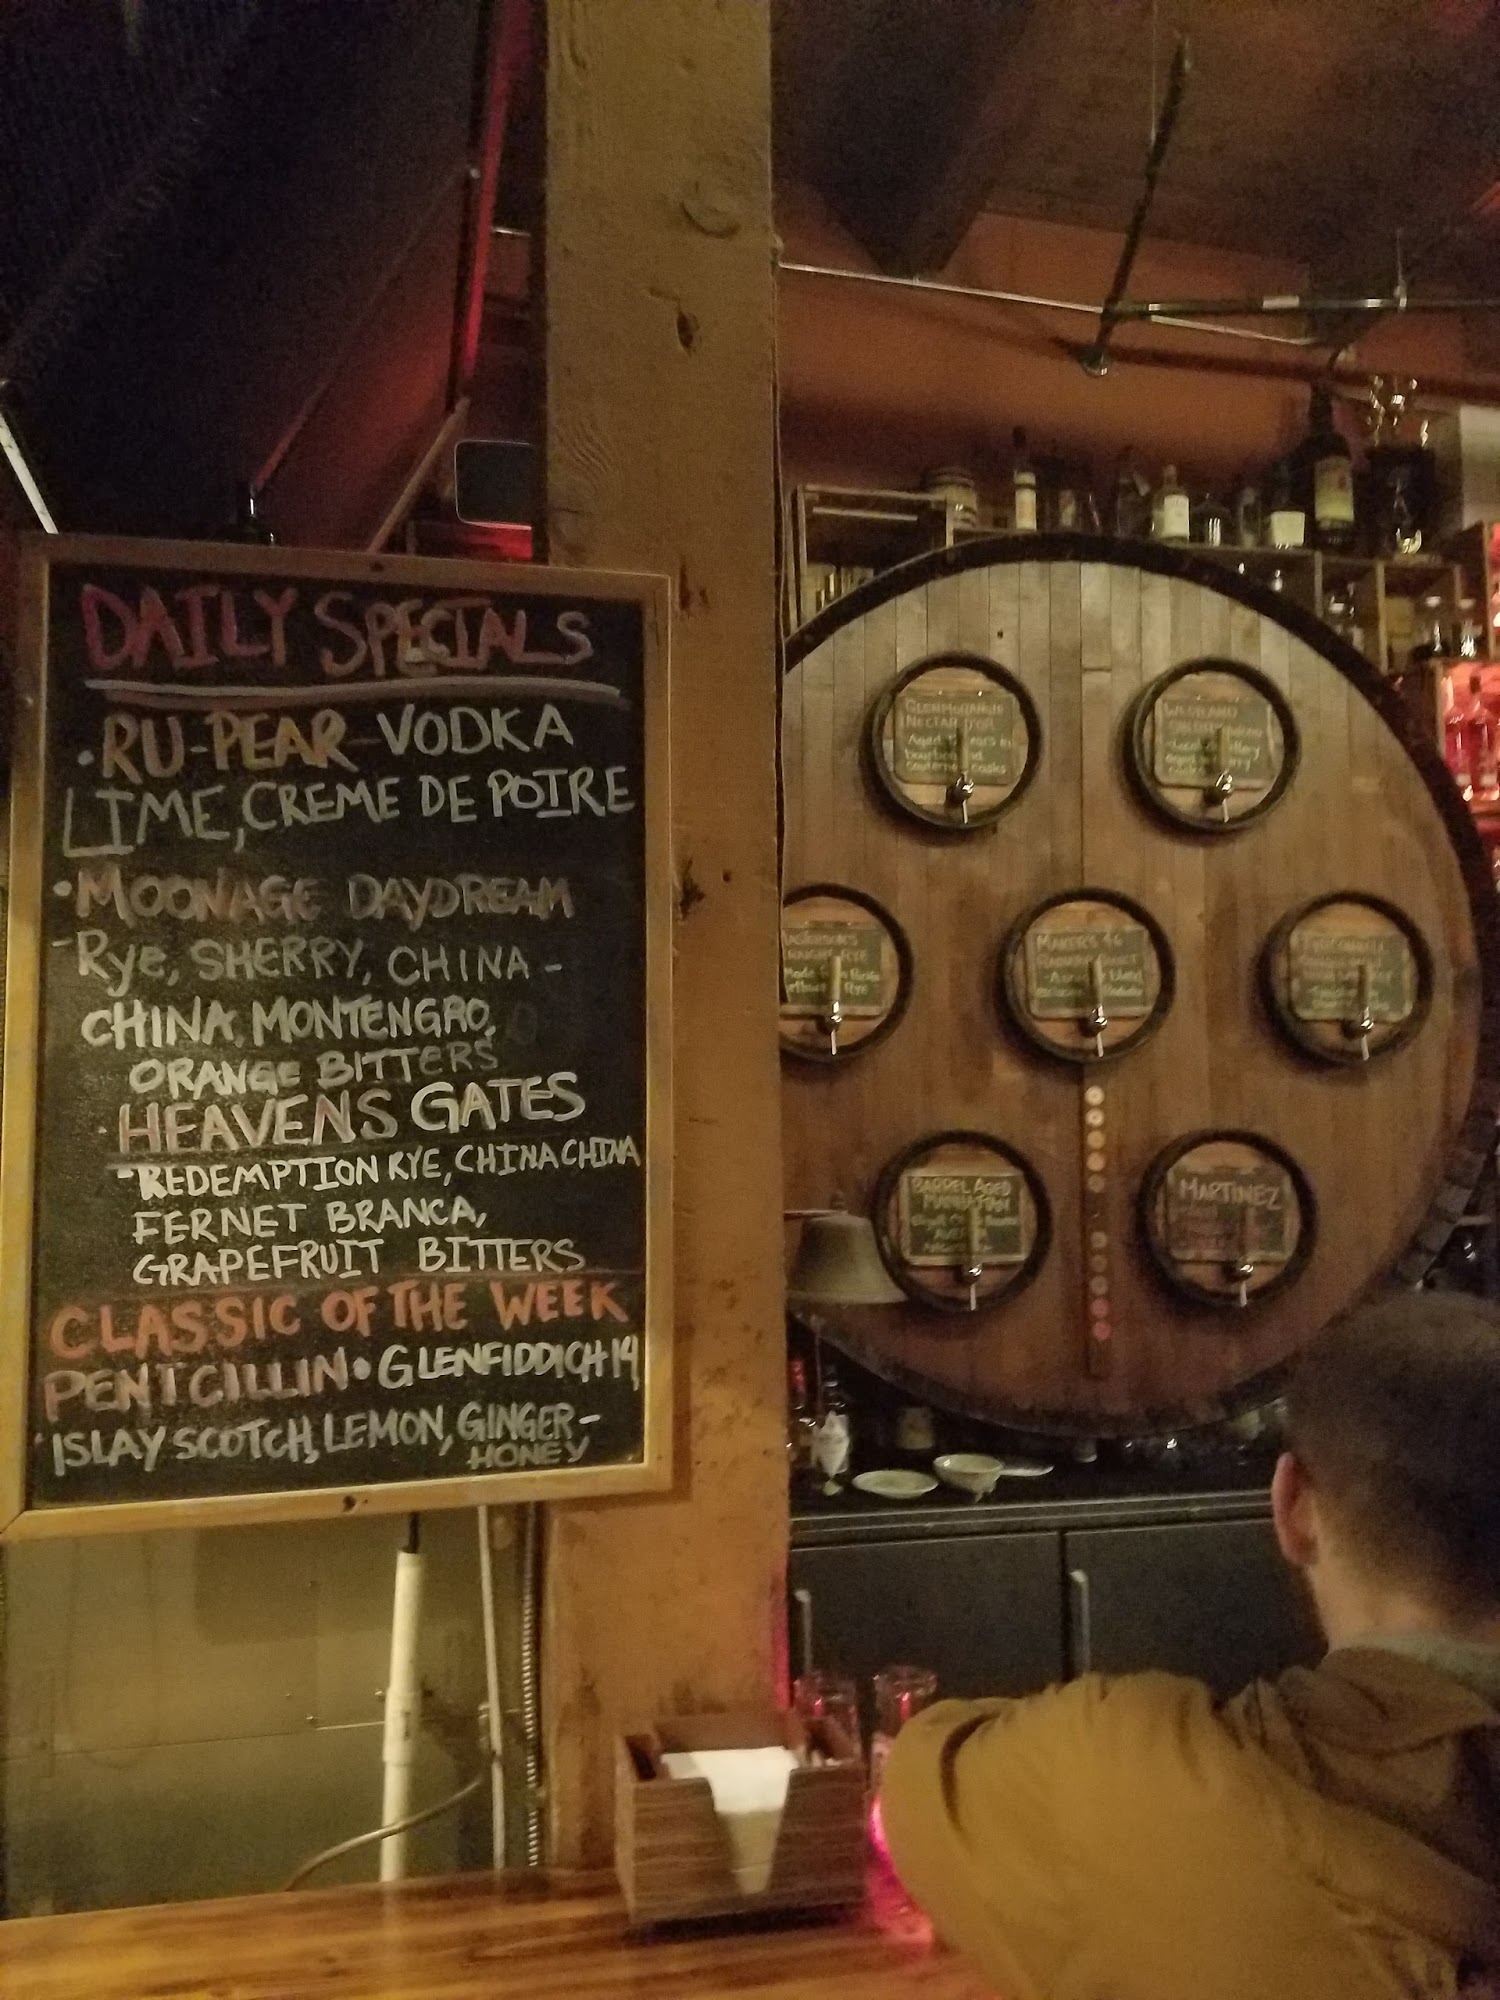 DAILY SPECIALS
• RU-PEAR-VODKA
LIME, CREME DE POIRE
• MOONAGE DAYDREAM
- Rye, SHERRY, CHINA -
CHINA, MONTENGRO,
ORANGE BITTERS
• HEAVENS GATES
- REDEMPTION RYE, CHINA CHINA
FERNET BRANCA,
GRAPEFRUIT BITTERS
CLASSIC OF THE WEEK
PENICILLIN • GLENFIDDICH 14
ISLAY SCOTCH, LEMON, GINGER-
HONEY
GLENMORANGIE
NECTAR D'OR
Aged years in
bourbon
casks
Rye
MAKER'S 46
BARREL AGED
MANHATTAN
MARTINEZ